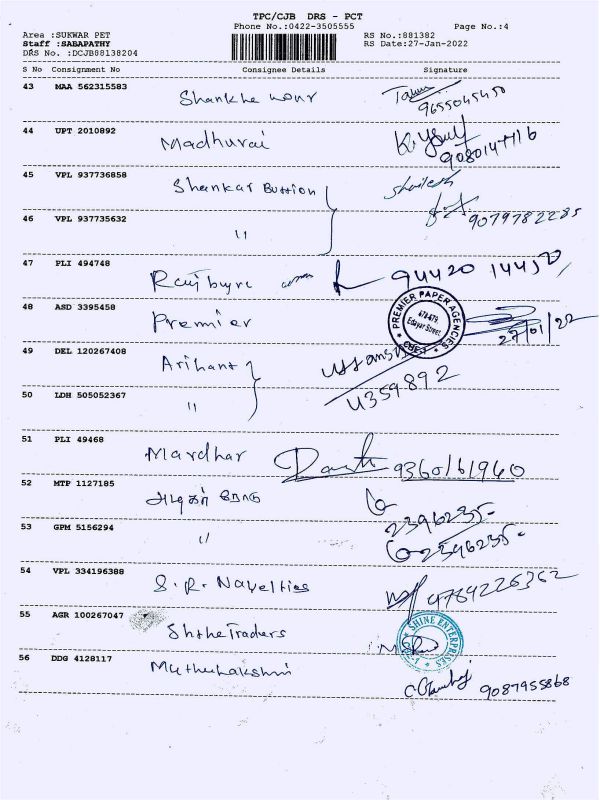 TPC/CJB DRS - PCT
Phone No.:0422-3505555 Page No.:4
Area :SUKWAR PET RS No.:881382
Staff :SABAPATHY RS Date:27-Jan-2022
DRS No. :DCJB88138204
S No Consignment No Consignee Details Signature
43 MAA 562315583
Shankha
9655045450
44 UPT 2010892
Madhurai
9080147716
45 VPL 937736858
Shankar Button
Shailesh
46 VPL 937735632
9079782285
"
47 PLI 494748
94420 14450
48 ASD 3395458
Premier
PREMIER PAPER AGENCIES
478-479,
Edayar Street,
CBE-1
27/01/22
49 DEL 120267408
Arihant
50 LDH 505052367
"
4359892
51 PLI 49468
Mardhar
9360161960
52 MTP 1127185
அடிகள் ரோடு
2396235
53 GPM 5156294
"
2396235
54 VPL 334196388
S.R. Novelties
9789226362
55 AGR 100267047
SHINE ENTERPRISES
Traders
56 DDG 4128117
Muthulakshmi
9087955868